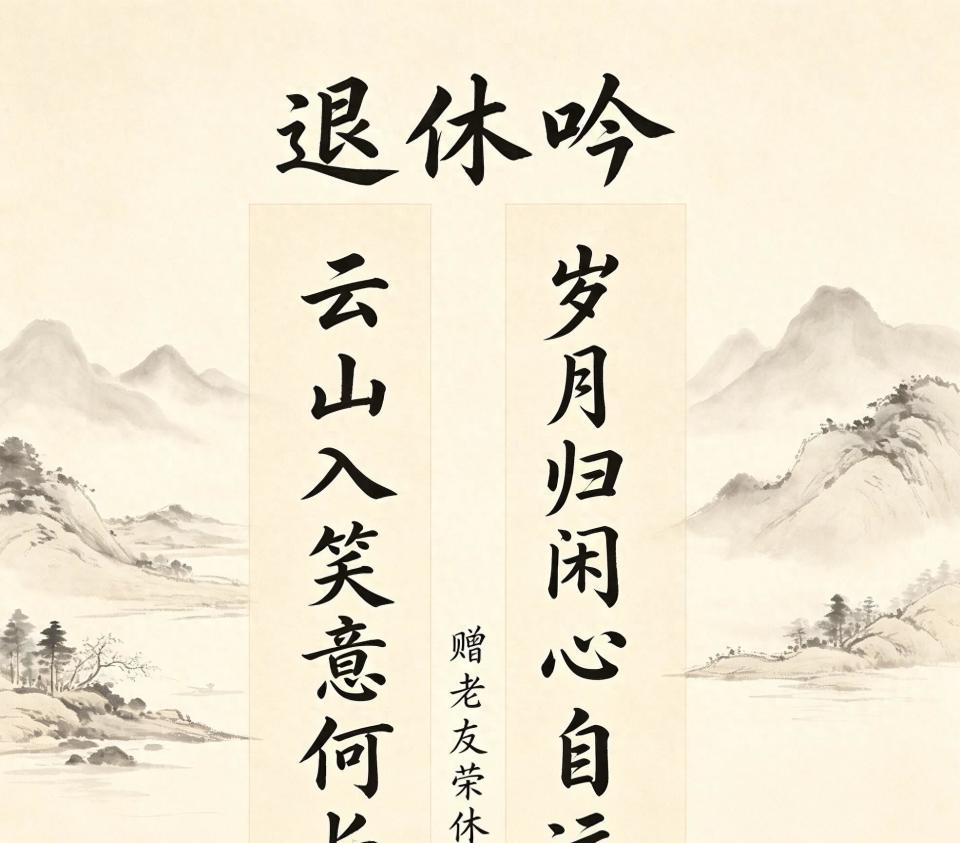 退休吟
岁月归闲心自
云山入笑意何
赠老友荣休